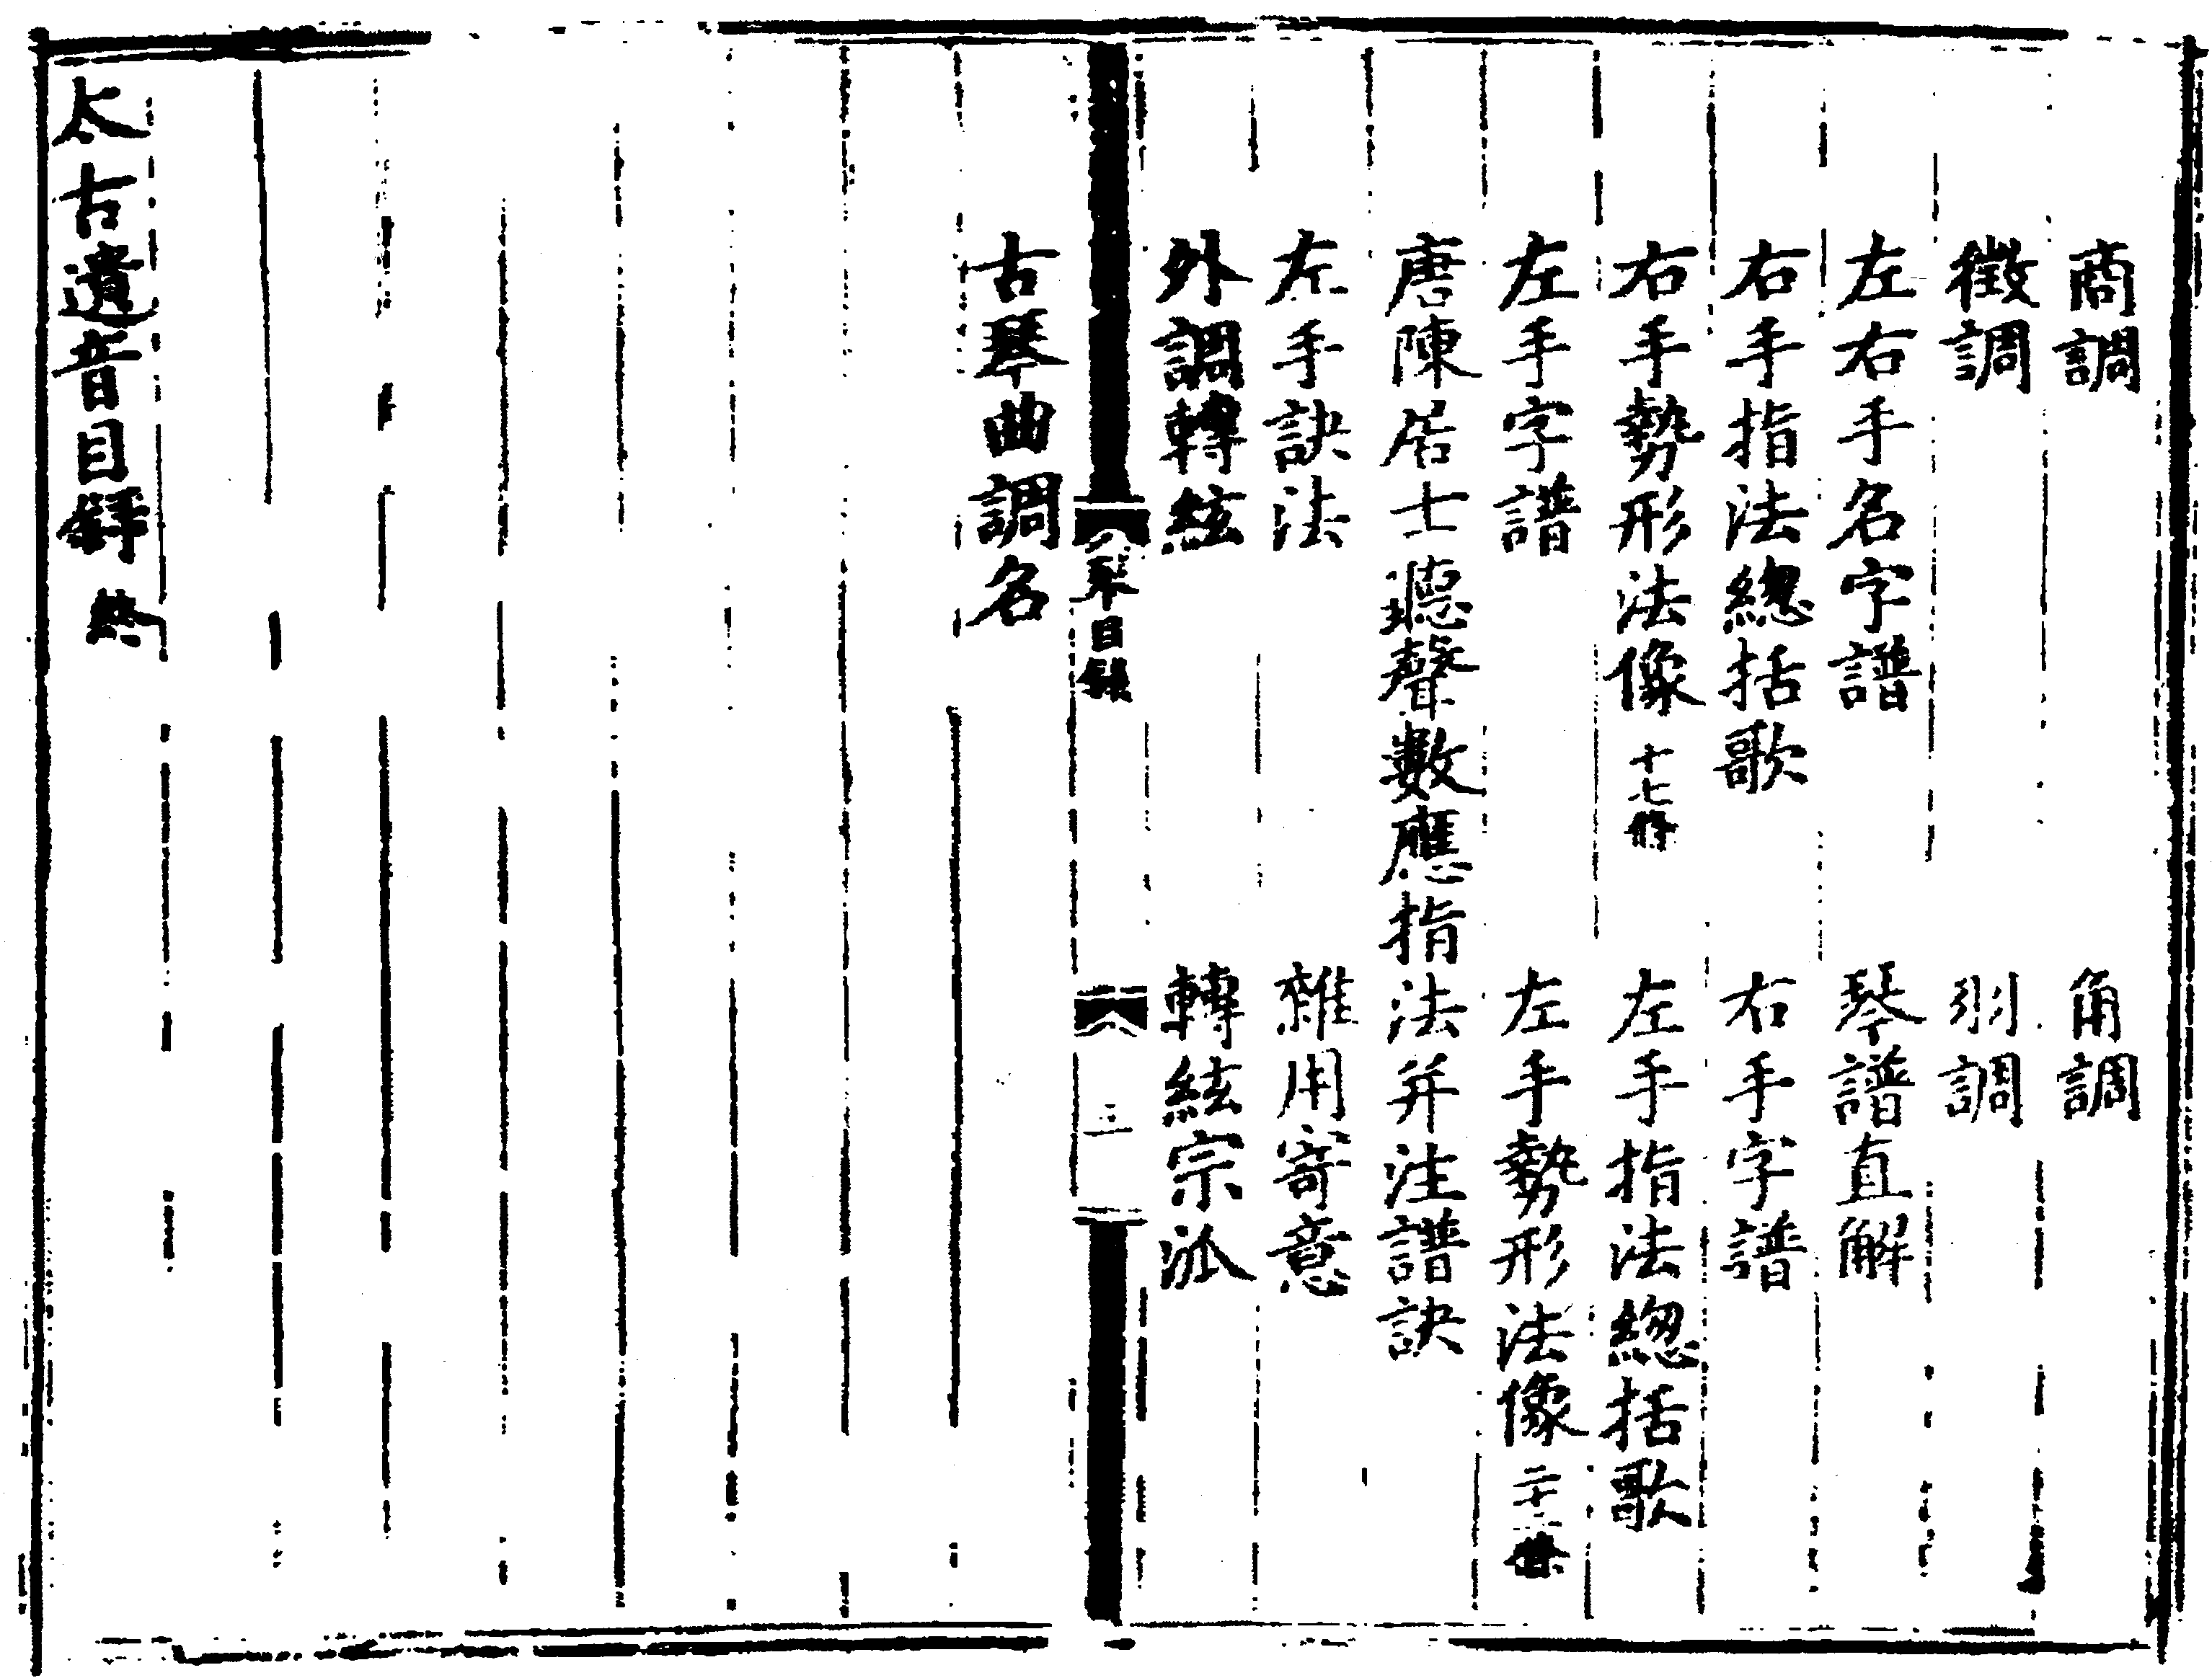 商調 角調
徵調 羽調
左右手名字譜 琴譜直解
右手指法總括歌 右手字譜
右手勢形法像 十七 左手指法總括歌
左手字譜 左手勢形法像
唐陳居士聽聲數應指法并注譜訣
左手訣法 雜用寄意
外調轉絃 轉絃宗派
琴目錄
古琴曲調名
太古遺音目錄 終